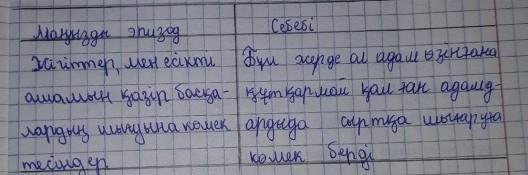 Маңызды эпизод
Себебі
Жігіттер, мен есікті
ашамын қазір басқа-
лардың шығуына көмек
тесіңдер
Бұл жерде ол адам өзін ғана
құтқармай қалған адамд-
арғыда сыртқа шығаруға
көмек берді